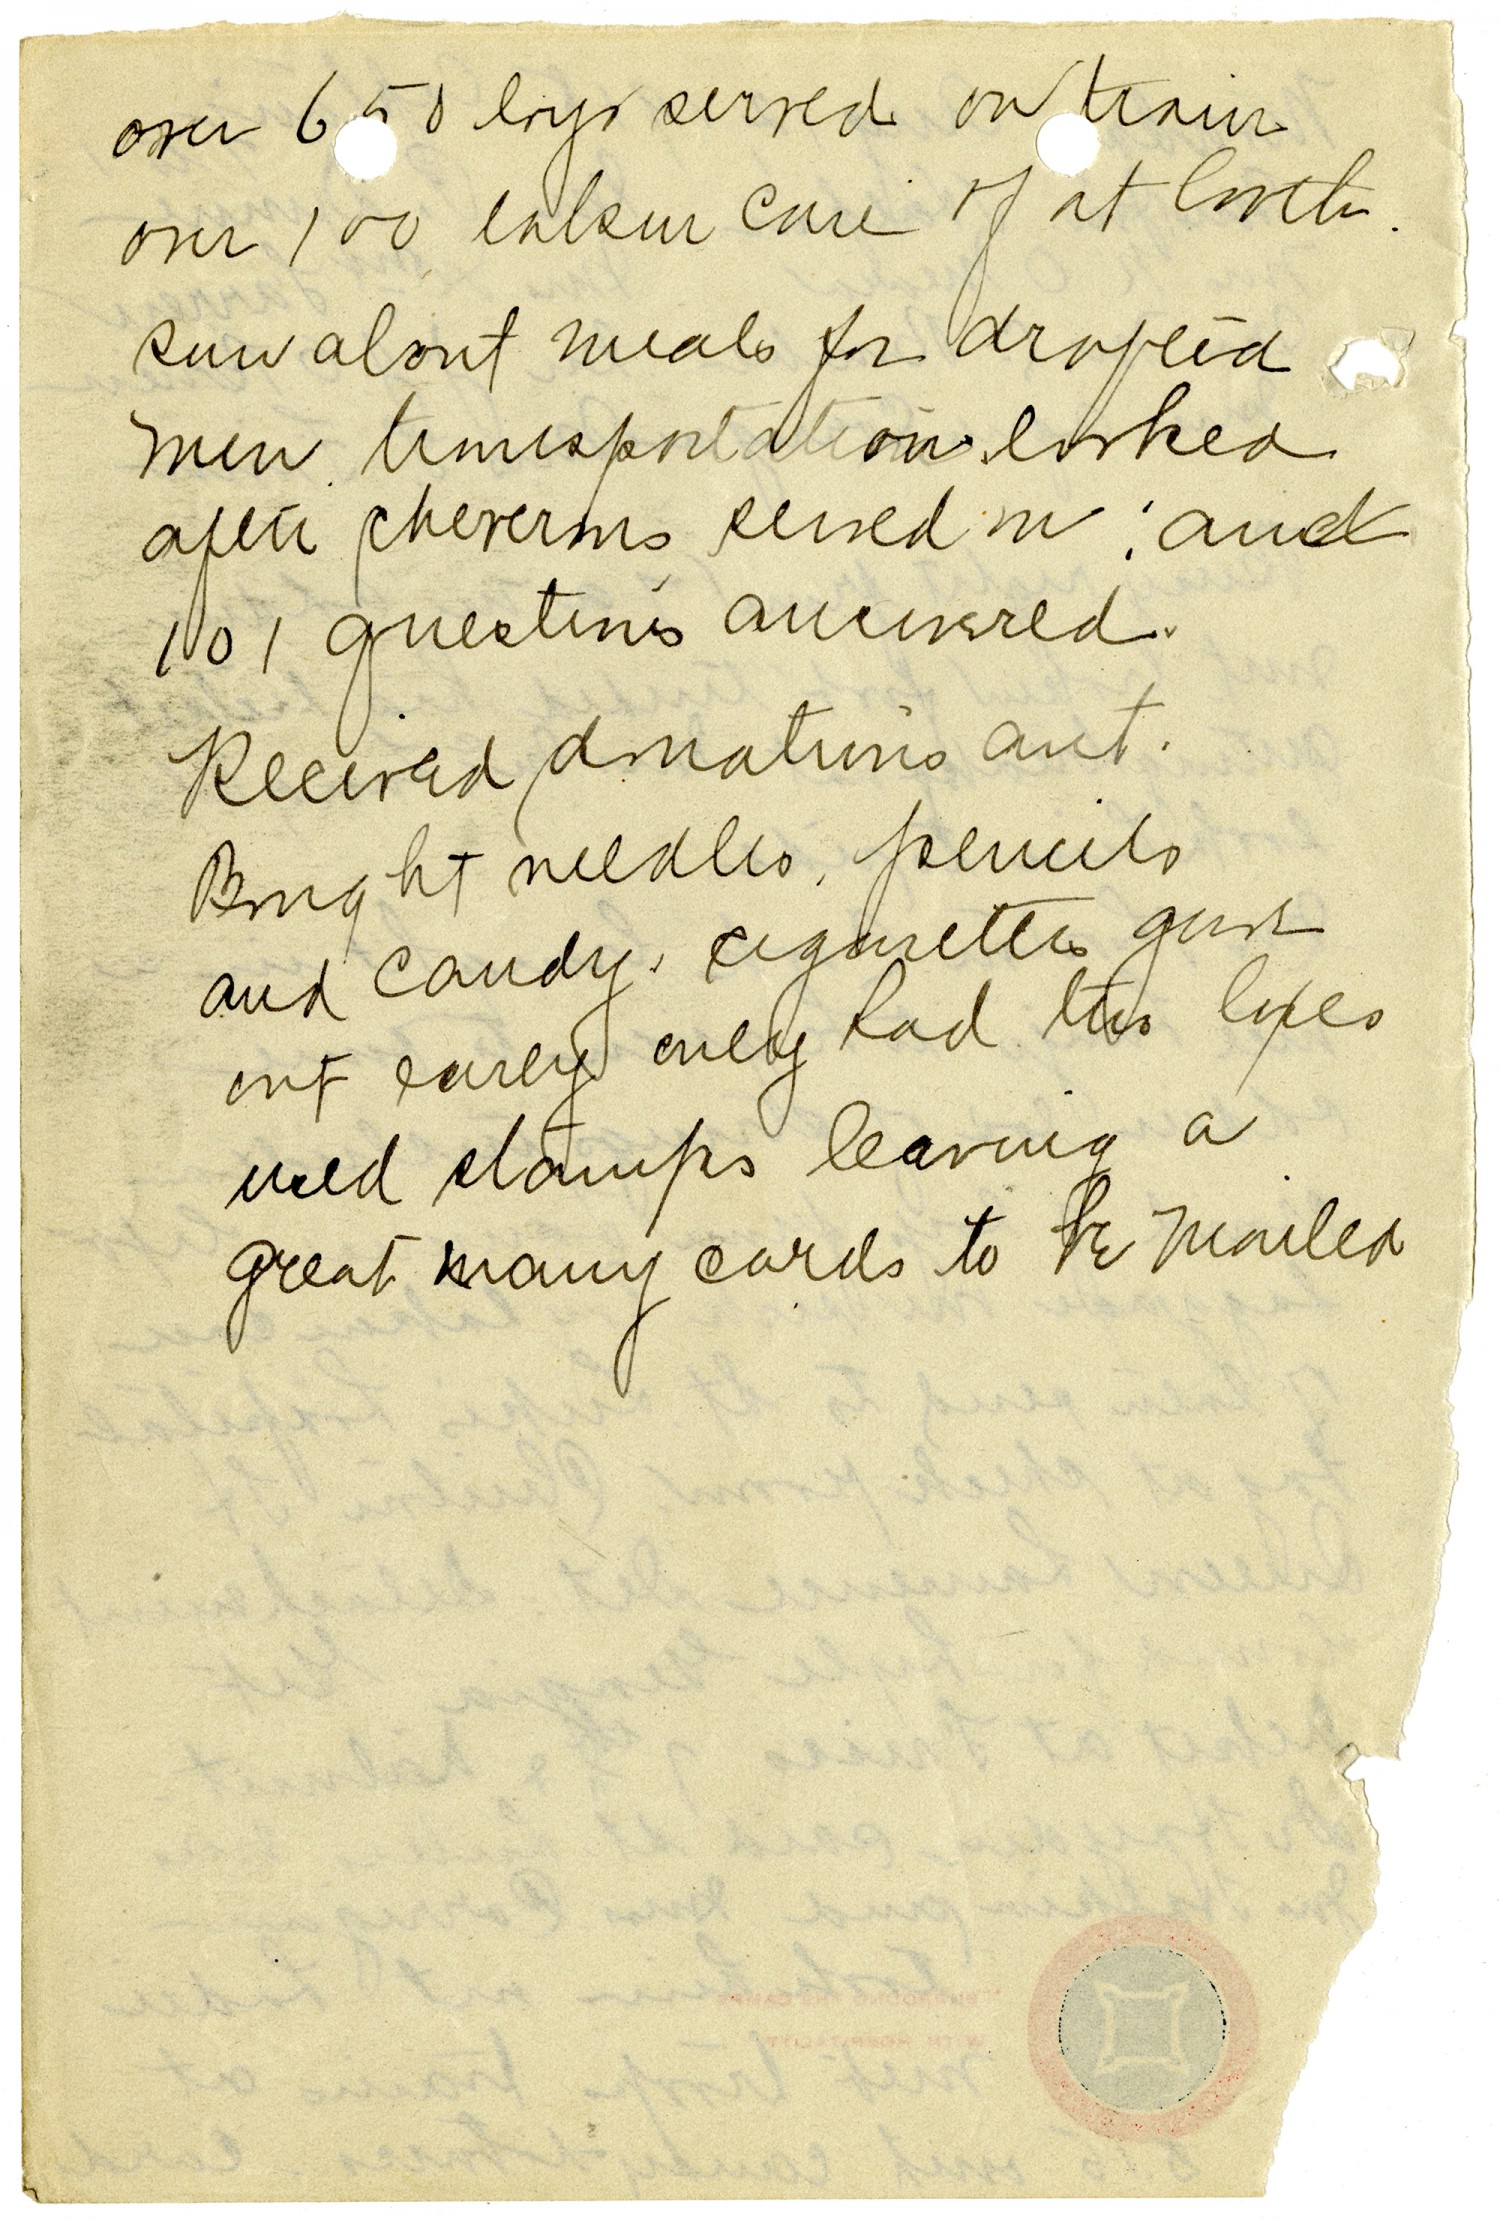 over 650 boys served on train
over 100 taken care of at booth.
saw about meals for dropped
men. transportation looked
after cheverons sewed on; and
101 questions answered.
Received donations art.
Bought needles, pencils
and candy. cigarettes gave
out early only had two boxes
used stamps leaving a
great many cards to be mailed